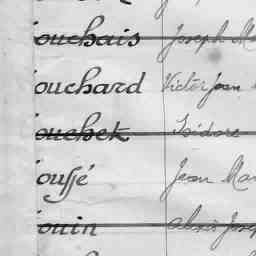 ouchais Joseph Ma
ouchard Victor Jean
ouchek Isidore
oussé Jean Mar
ouin Alexis Josep